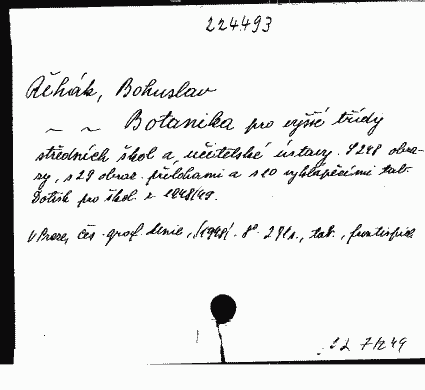 224493
Řehák, Bohuslav
~ ~ Botanika pro vyšší třídy
středních škol a učitelské ústavy. S 248 obra-
zy, s 29 obraz. přílohami a s 10 vyklápěcími tab.
Dotisk pro škol. r. 1948/49.
V Praze, Čes. graf. Unie, /1948/. 8°. 291 s., tab., frontispic.